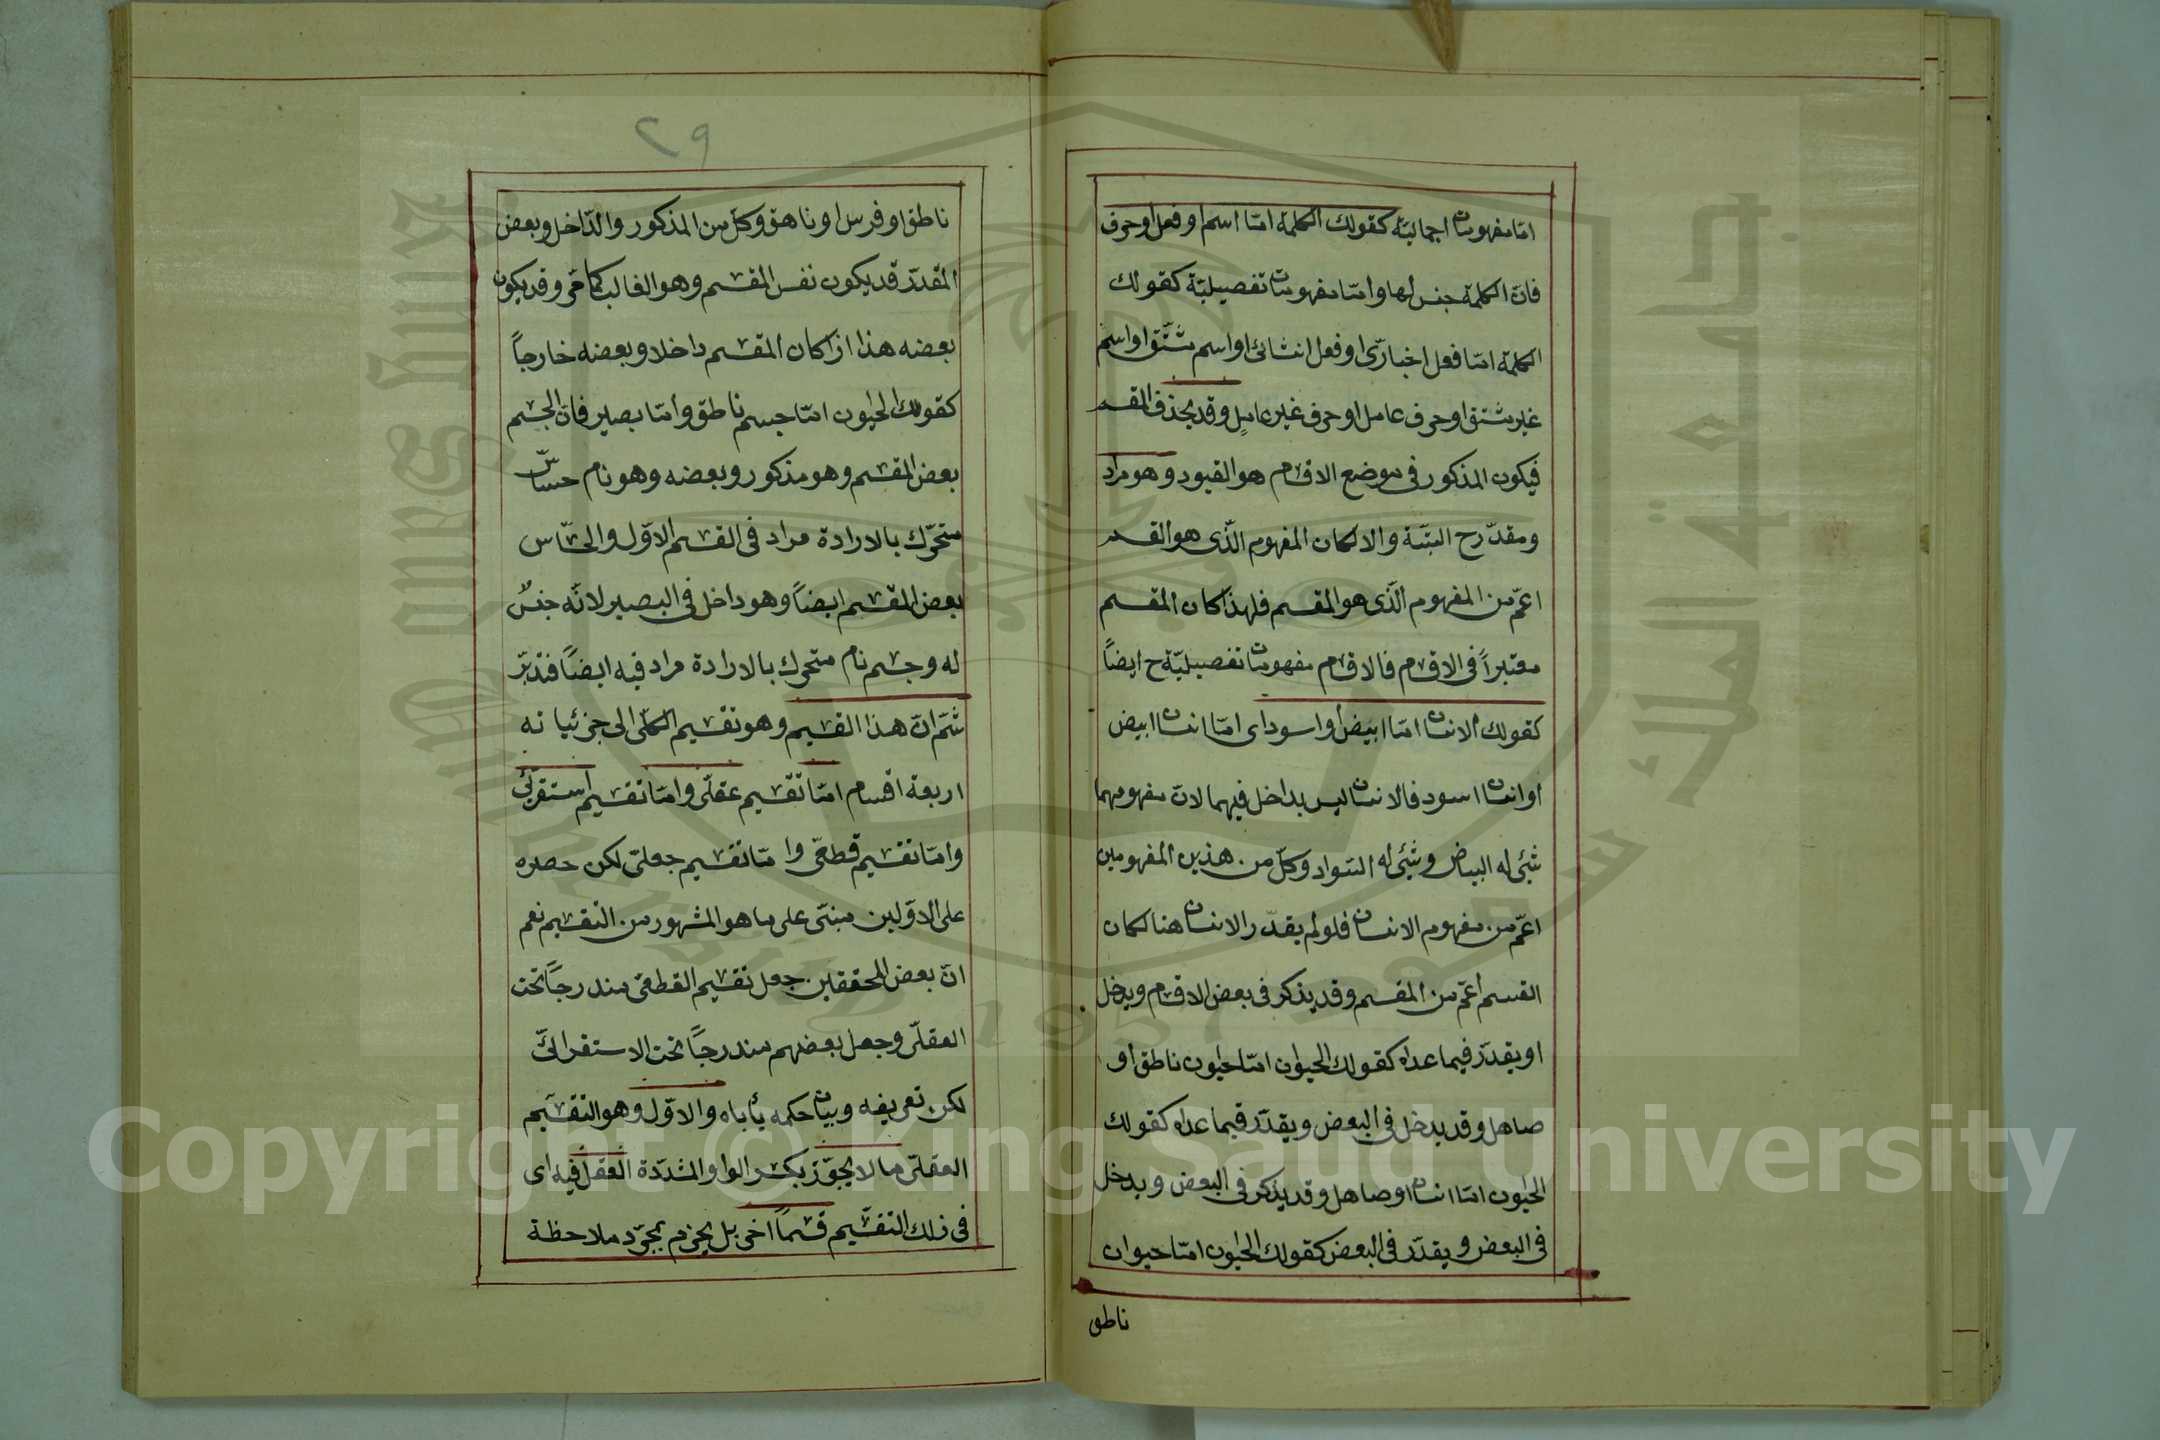 امّا مفهومات اجماليّة كقولك الكلمة امّا اسم او فعل او حرف
فانّ الكلمة جنس لها وامّا مفهومات تفصيليّة كقولك
الكلمة امّا فعل اخباريّ او فعل انشائى او اسم مشتّق او اسم
غير مشتق او حرف عامل او حرف غير عامل وقد يحذف المقسم
فيكون المذكور فى موضع الاقسام هو القيود وهو مراد
ومقدّر ح البتّة والا لكان المفهوم الّذى هو القسم
اعمّ من المفهوم الّذى هو المقسم فلهذا كان المقسم
معتبراً فى الاقسام فالاقسام مفهومات تفصيليّة ح ايضاً
كقولك الانسان امّا ابيض او اسود اى امّا انسان ابيض
او انسان اسود فالانسان ليس بداخل فيهما لانّ مفهومهما
شئى له البياض وشئى له السّواد وكلّ من هذين المفهومين
اعمّ من مفهوم الانسان فلو لم يقدّر الانسان هنا لكان
القسم اعمّ من المقسم وقد يذكر فى بعض الاقسام ويدخل
او يقدّر فيما عداه كقولك الحيوان امّا حيوان ناطق او
صاهل وقد يدخل فى البعض ويقدّر فيما عداه كقولك
الحيوان امّا انسان او صاهل وقد يذكر فى البعض ويدخل
فى البعض ويقدّر فى البعض كقولك الحيوان امّا حيوان
ناطق
٢٩
ناطق او فرس او ناهق وكلّ من المذكور والدّاخل وبعض
المقدّر قد يكون نفس المقسم وهو الغالب كما مرّ وقد يكون
بعضه هذا اذا كان المقسم داخلا وبعضه خارجاً
كقولك الحيوان امّا جسم ناطق وامّا بصير فانّ الجسم
بعض المقسم وهو مذكور وبعضه وهو نام حسّاس
متحرّك بالارادة مراد فى القسم الاوّل والحسّاس
بعض المقسم ايضاً وهو داخل فى البصير لانّه جنسٌ
له وجسم نام متحرك بالارادة مراد فيه ايضاً فتدبّر
ثمّ انّ هذا التقسيم وهو تقسيم الكلّى الى جزئياته
اربعة اقسام امّا تقسيم عقلّى وامّا تقسيم استقرائى
وامّا تقسيم قطعّى وامّا تقسيم جعلىّ لكن حصره
على الاوّلين مبنىّ على ما هو المشهور من التقسيم نعم
انّ بعض المحققين جعل تقسيم القطعى مندرجاً تحت
العقلّى وجعل بعضهم مندرجاً تحت الاستقرائىّ
لكن تعريفه وبيان حكمه يأباه والاوّل وهو التقسيم
العقلّى ما لا يجوّز بكسر الواو المشدّدة العقل فيه اى
فى ذلك التقسيم قسماً اخر بل يجزم بمجرّد ملاحظة
Copyright © King Saud University
جامعة الملك سعود
King Saud University
1957